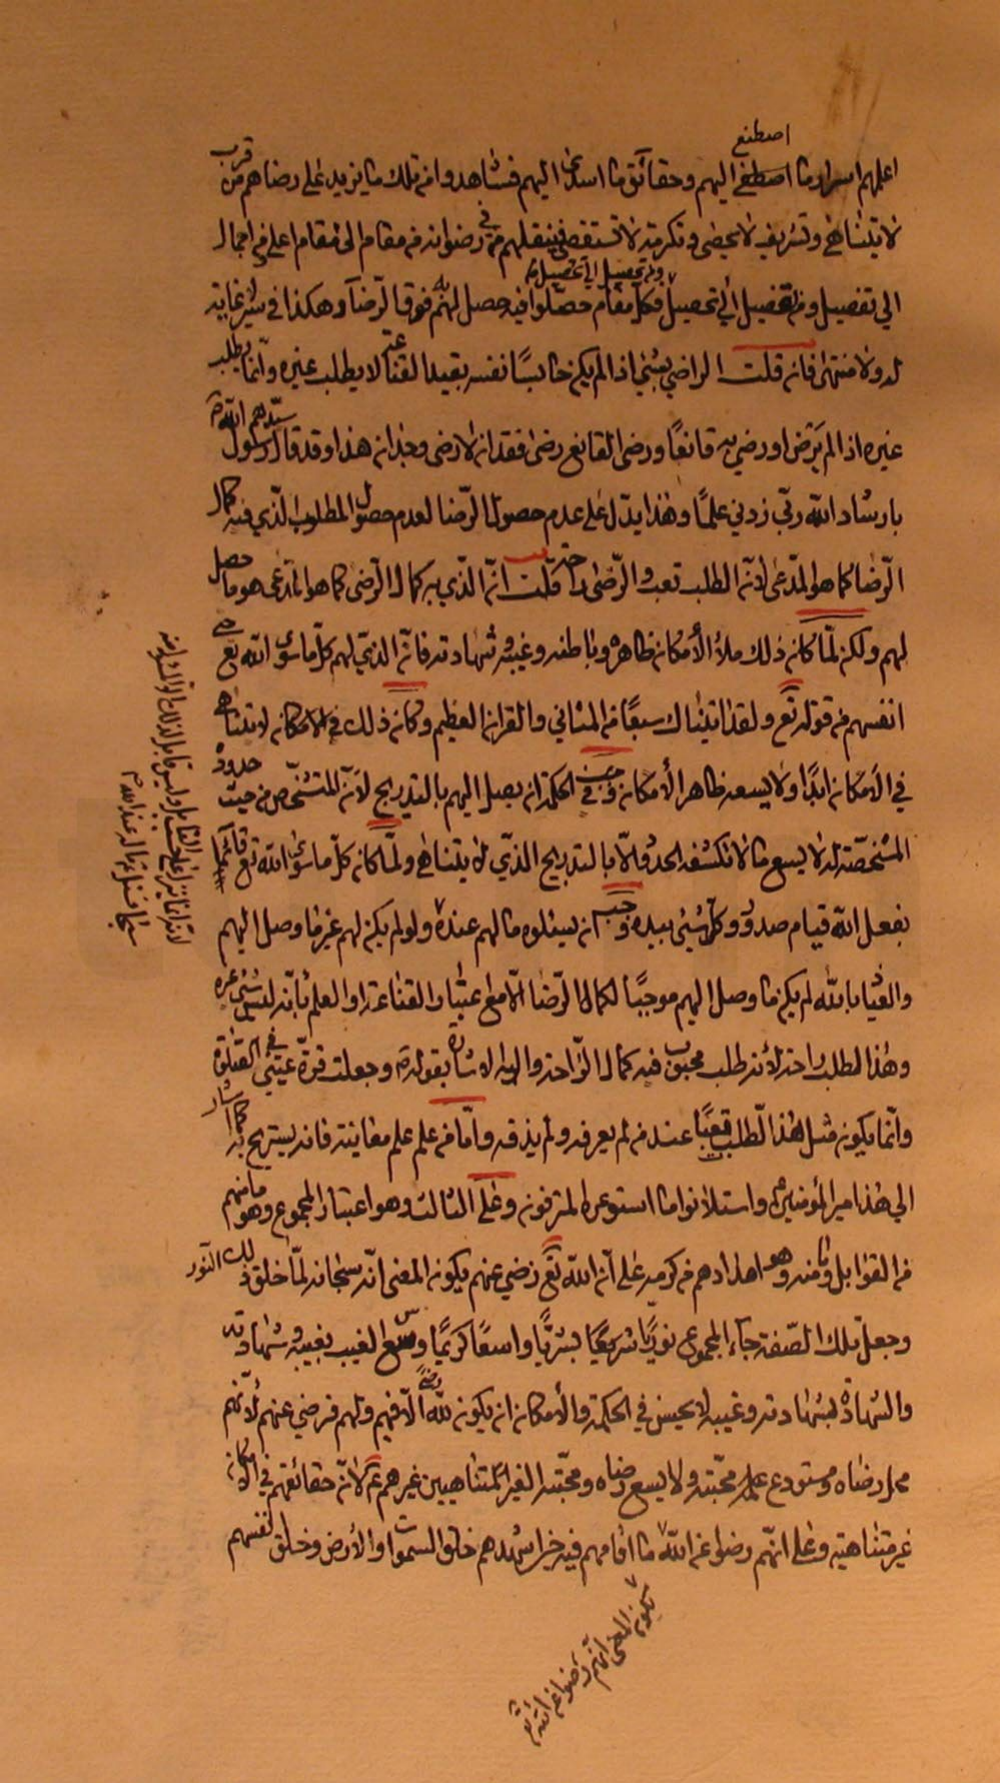 اصطنع
اعلمهم اسرار ما اصطفى اليهم وحقائق ما اسدى اليهم فشاهدوا من تلك ما يزيد على رضاهم من قرب
لا يتناهى وتشريف لا يحصى وتكرمة لا تستقصى فينقلهم في رضوانه من مقام الى مقام اعلى من اجمال
الى تفصيل ومن تفصيل الى تحصيل فكل مقام حصلوا فيه حصل لهم فوق الرضا وهكذا في سير لا غاية
له ولا منتهى فان قلت الراضي بشئ اذا لم يكن حابسا نفسه بقيد القناعة لا يطلب غيره وانما يطلب
غيره اذا لم يرض او رضي به قانعا ورضى القانع رضى فقدان لا رضى وجدان هذا وقد قال رسول الله
بارشاد الله ربي زدني علما وهذا يدل على عدم حصول الرضا لعدم حصول المطلوب الذي فيه كمال
الرضا كما هو المدعى لانه الطلب تعب والرضى راحة قلت ان الذي به كمال الرضى كما هو المدعى هو ما حصل
لهم ولكن لما كان ذلك ملأ الأمكان ظاهره وباطنه وغيبه وشهادته فان الذي لهم كل ما سوى الله تع حتى
انفسهم من قوله تع ولقد اتيناك سبعا من المثاني والقرآن العظيم وكان ذلك في الامكان لا يتناهى
في الأمكان ابدا ولا يسعه ظاهر الأمكان وجب في الحكمة ان يصل اليهم بالتدريج لأن المتشخص من حيث حدوده
المشخصة له لا يسع ما لا تكشفه الحدود الا بالتدريج الذي لا يتناهى ولما كان كل ما سوى الله تع قائما
بفعل الله قيام صدور وكل شئ بيده وجب ان يسئلوه ما لهم عنده ولو لم يكن لهم غير ما وصل اليهم
والعياذ بالله لم يكن ما وصل اليهم موجبا لكمال الرضا الا مع اعتبار القناعة او العلم بانه ليس شئ غيره
وهذا الطلب راحة لأنه طلب محبوب فيه كمال الراحة واليه الاشارة بقوله وجعلت قرة عيني في الصلوة
وانما يكون مثل هذا الطلب تعبا عند من لم يعرفه ولم يذقه واما من علم علم معاينة فانه يستريح به كما اشار
الى هذا امير المؤمنين واستلانوا ما استوعره المترفون وعلى الثالث وهو اعتبار المجموع وهو ما منهم
من القوابل وما منه وهو امدادهم من كرمه على ان الله تع رضي عنهم يكون المعنى انه سبحانه لما خلق ذلك النور
وجعل تلك الصفة جاء المجموع نوريا شريعيا بشريا واسعا كريما وسع الغيب بغيبه وشهادته
والشهادة بشهادته وغيبه لا يحسن في الحكمة والأمكان ان يكون لله رضى الا فيهم ولهم فرضي عنهم لأنهم
محل رضاه ومستودع علمه محبته ولا يسع رضاه ومحبته الغير المتناهيين غيرهم لأن حقائقهم في الامكان
غير متناهية وعلى انهم رضوا عن الله ما اقامهم فيه حين اشهدهم خلق السموات والأرض وخلق انفسهم
يكون المعنى انهم رضوا عن الله